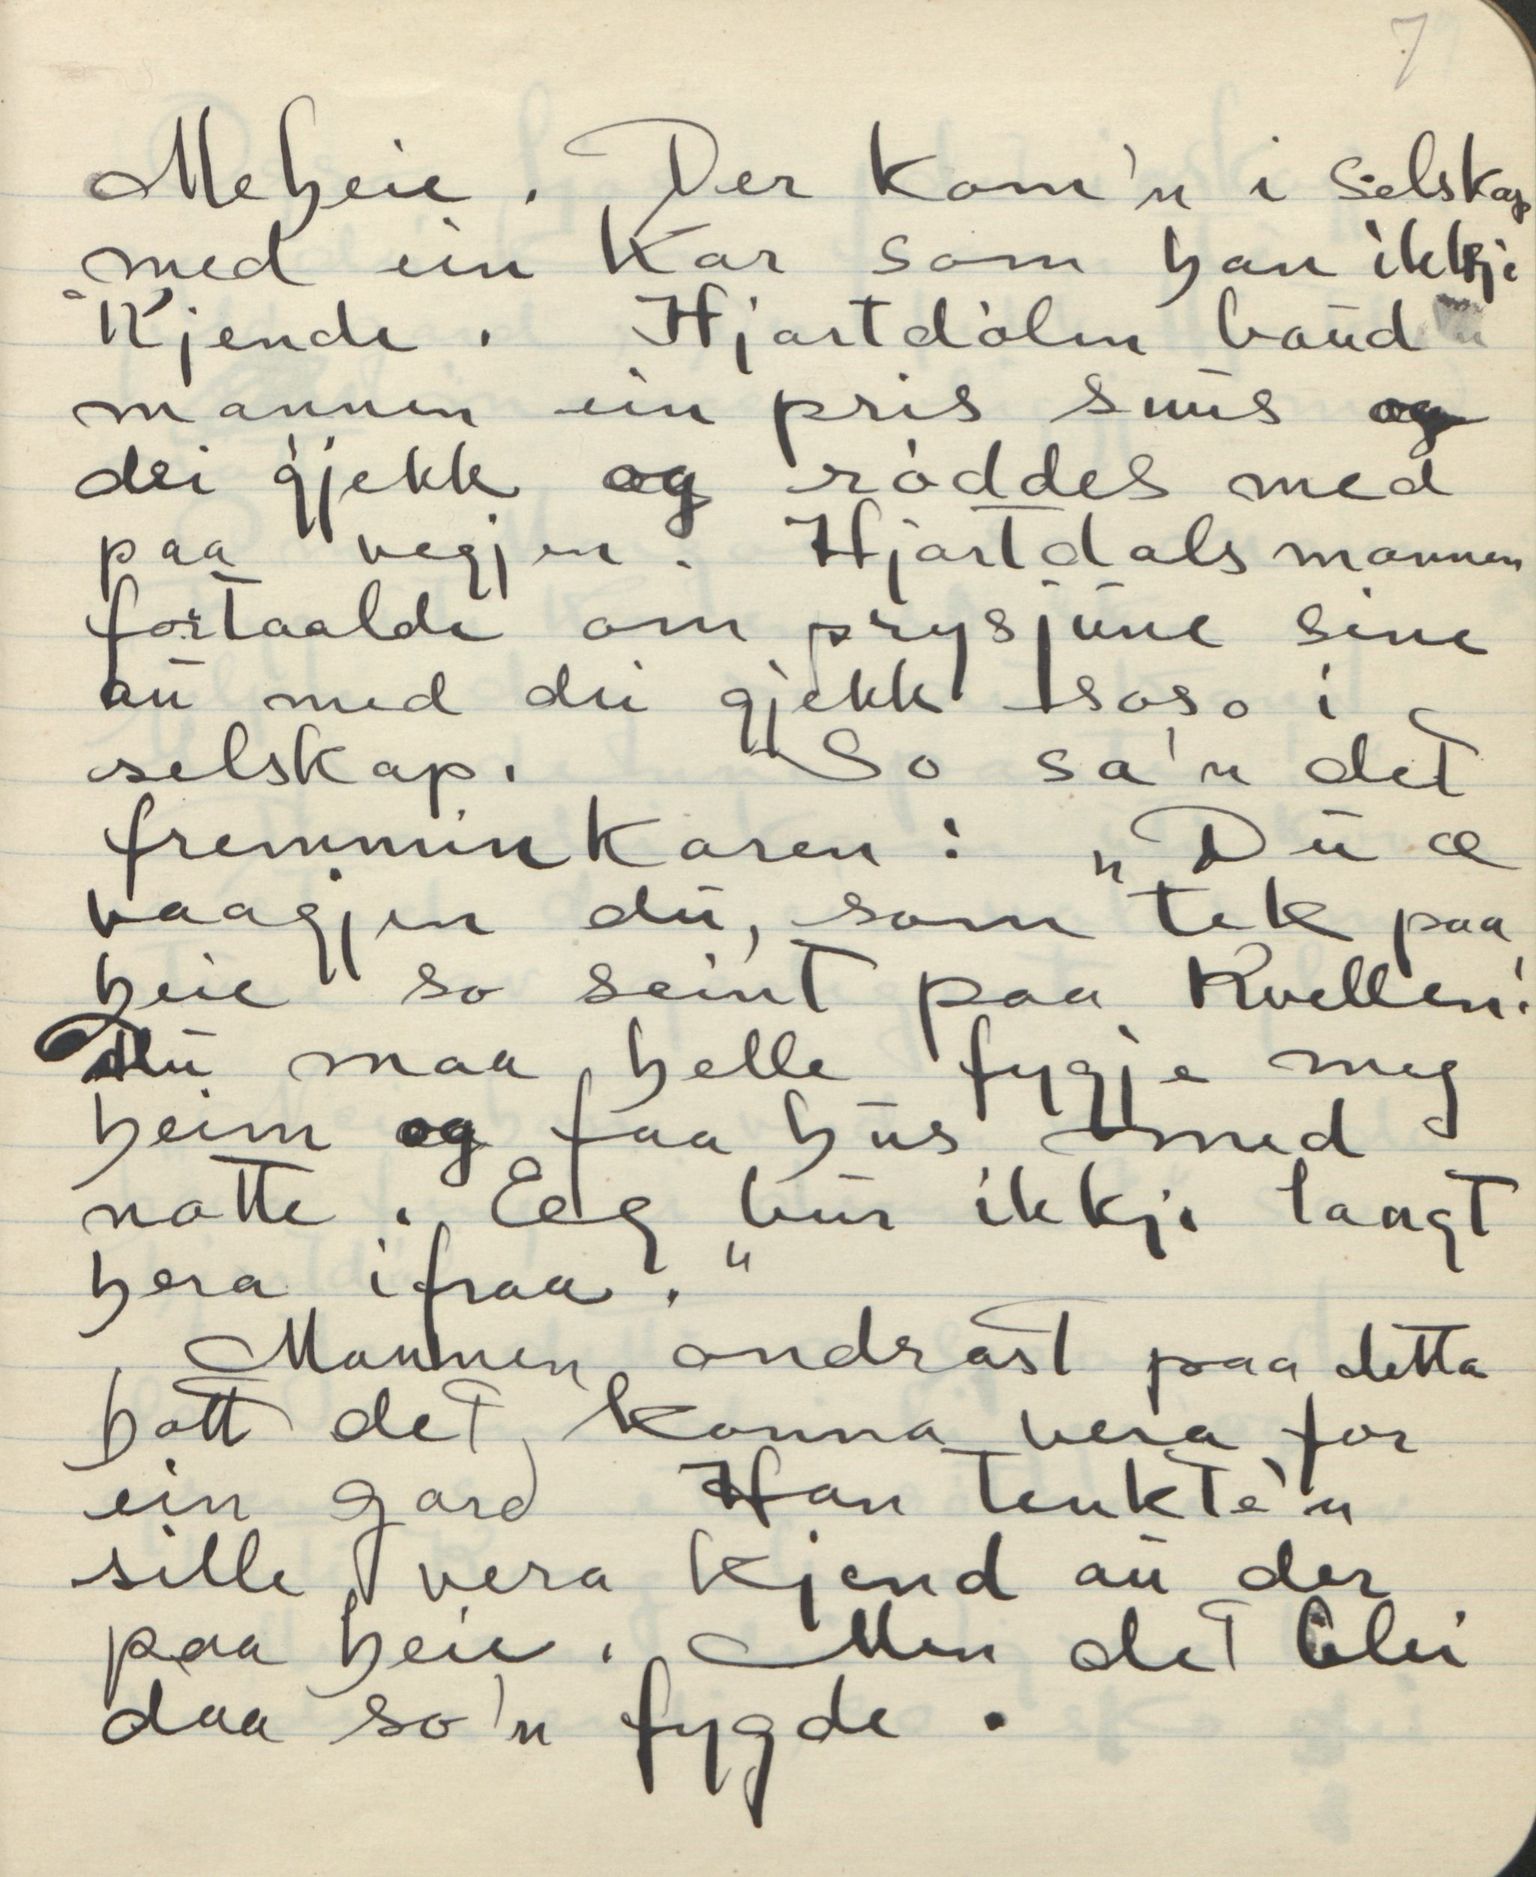 7
Meheie. Der kom'n i selskap
med ein kar som han ikkje
kjende. Hjartdølen baud
mannen ein pris snus og
dei gjekk og røddes med
paa vegjen. Hjartdalsmannen
fortaalde om prysjune sine
au med dei gjekk soso i
selskap. So sa'n det
fremminkaren: „Du æ
vaagjen du, som tek paa
heie so seint paa kvellen!
Du maa helle fygje meg
heim og faa hus med
natte. Eeg bur ikkje langt
hera ifraa."
Mannen ondrast paa detta
hott det konna vera for
ein gard Han tenkte'n
sille vera kjend au der
paa heie. Men det blei
daa so'n fygde.